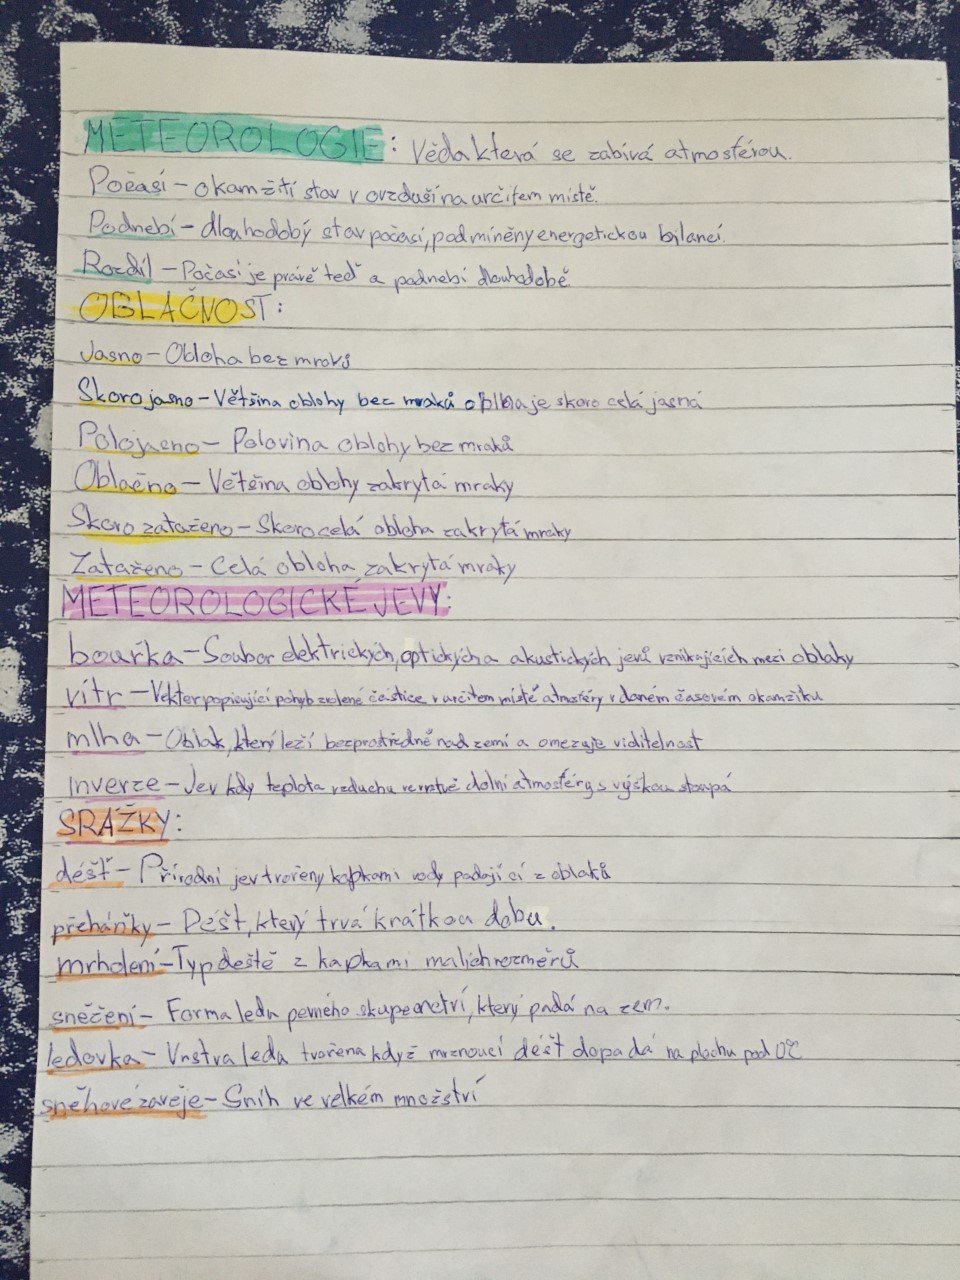 METEOROLOGIE: Věda která se zabívá atmosférou.
Počasí - okamžití stav v ovzduší na určitem místě.
Podnebí - dlouhodobý stav počasí, podmíněny energetickou bilancí.
Rozdíl - Počasí je právě teď a podnebí dlouhodobě.
OBLAČNOST:
Jasno - Obloha bez mraků
Skoro jasno - Většina oblohy bez mraků obloha je skoro celá jasná
Polojasno - Polovina oblohy bez mraků
Oblačno - Většina oblohy zakrytá mraky
Skoro zataženo - Skoro celá obloha zakrytá mraky
Zataženo - Celá obloha zakrytá mraky
METEOROLOGICKÉ JEVY:
bouřka - Soubor elektrických, optických a akustických jevů vznikajících mezi oblahy
vítr - Vektor popisující pohyb zvolené částice v určitem místě atmosféry v daném časovém okamžiku
mlha - Oblak, který leží bezprostředně nad zemí a omezuje viditelnost
Inverze - Jev kdy teplota vzduchu ve vrstvě dolní atmosféry s výškou stoupá
SRÁŽKY:
déšť - Přírodní jev tvořeny kapkami vody padající z oblaků
přeháňky - Déšt, který trvá krátkou dobu.
mrholení - Typ deště z kapkami malích rozměrů
sněčení - Forma ledu pevného skupenství, který padá na zem.
ledovka - Vrstva ledu tvořena když mrznoucí déšt dopadá na plochu pod 0°C
sněhové závěje - Sníh ve velkém množství